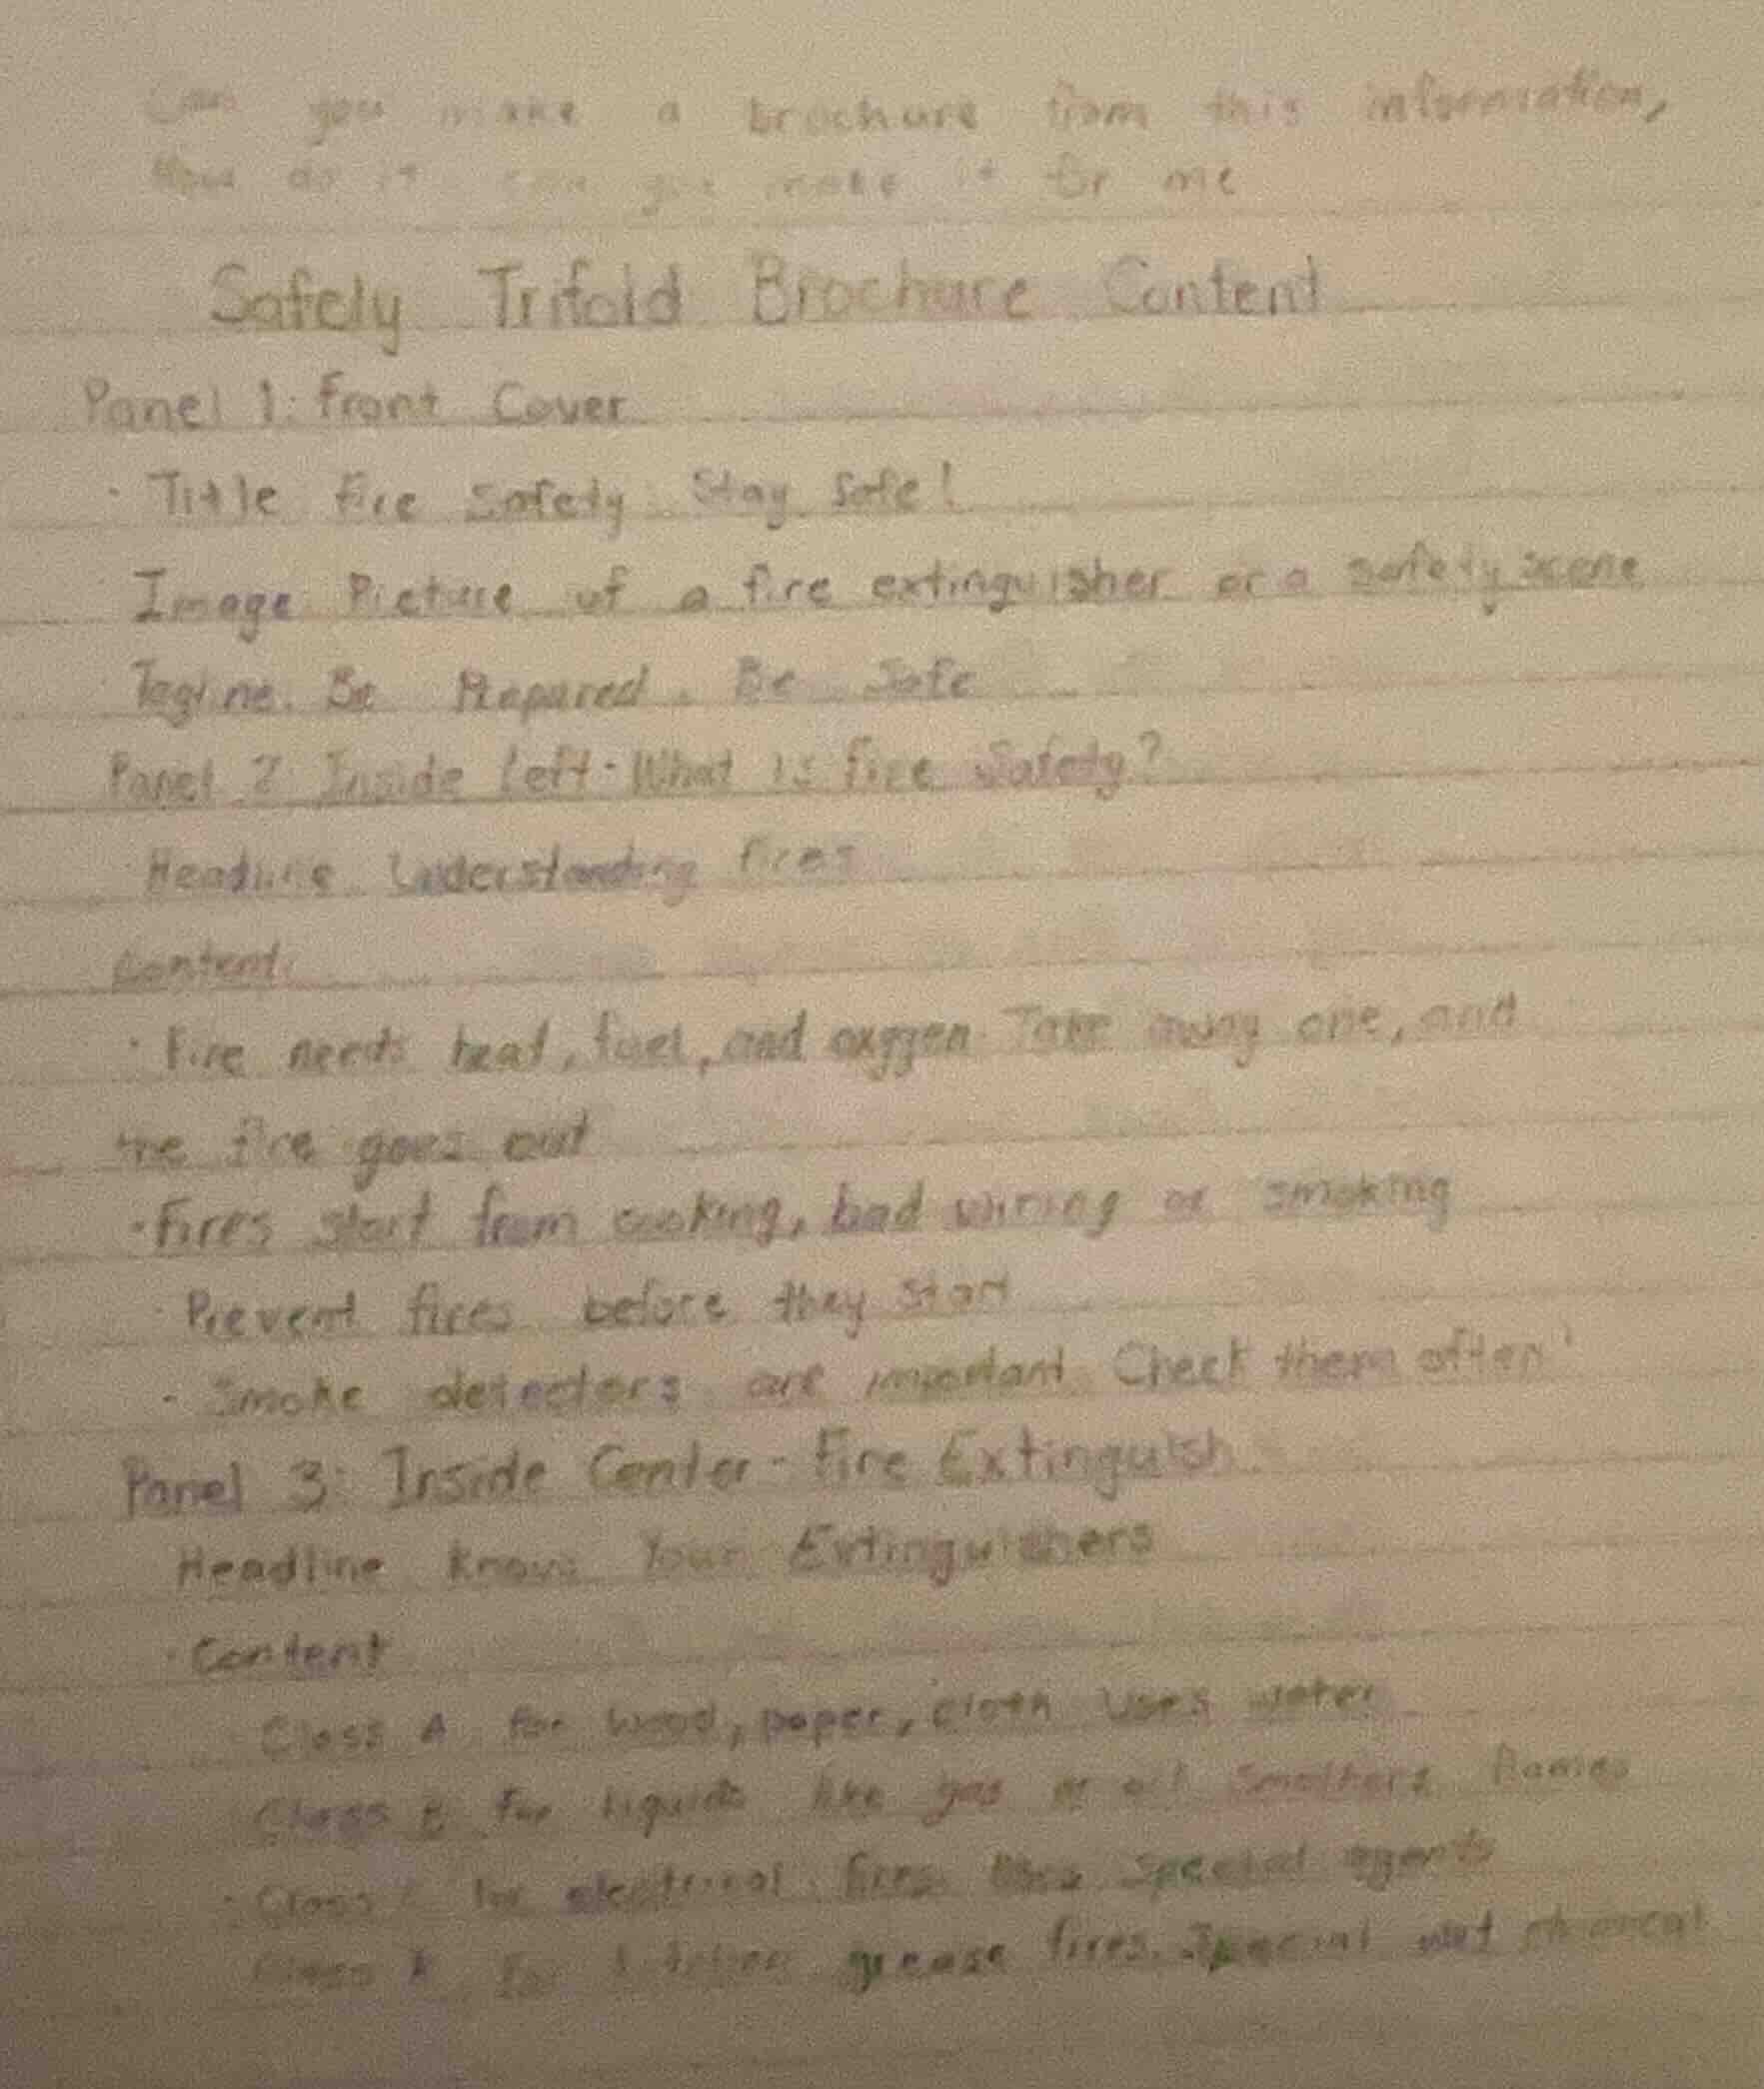 Can you make a brochure from this information,
How do it can you make it for me
Safety Trifold Brochure Content
Panel 1: Front Cover
· Title Fire Safety: Stay Safe!
Image Picture of a fire extinguisher or a safety scene
Tagline. Be Prepared. Be Safe
Panel 2 Inside Left - What is fire Safety?
Headline Understanding fires
Content:
· Fire needs heat, fuel, and oxygen. Take away one, and
the fire goes out
· Fires start from cooking, bad wiring or smoking
· Prevent fires before they start
- Smoke detectors are important. Check them often!
Panel 3: Inside Center - Fire Extinguish
Headline Know Your Extinguishers
· Content
Class A for wood, paper, cloth Uses water
Class B for liquids like gas or oil Smothers flames
· Class C for electrical fires. Uses special agents
Class K for kitchen grease fires. Special wet chemical